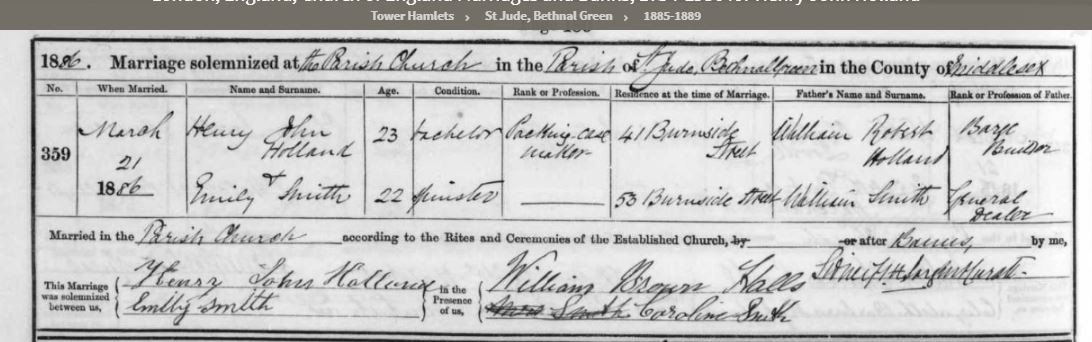 London, England, Church of England Marriages and Banns, 1754-1936 for Henry John Holland
Tower Hamlets › St Jude, Bethnal Green › 1885-1889
1886. Marriage solemnized at the Parish Church in the Parish of St Jude, Bethnal Green in the County of Middlesex
No. When Married. Name and Surname. Age. Condition. Rank or Profession. Residence at the time of Marriage. Father's Name and Surname. Rank or Profession of Father.
359 March 21 1886
Henry John Holland 23 bachelor Packing case maker 41 Burnside Street William Robert Holland Barge Builder
Emily Smith 22 spinster 53 Burnside Street William Smith General Dealer
Married in the Parish Church according to the Rites and Ceremonies of the Established Church, by or after Banns, by me,
This Marriage was solemnized between us, Henry John Holland
Emily Smith
In the Presence of us, William Brown Halls
Smith Caroline Smith